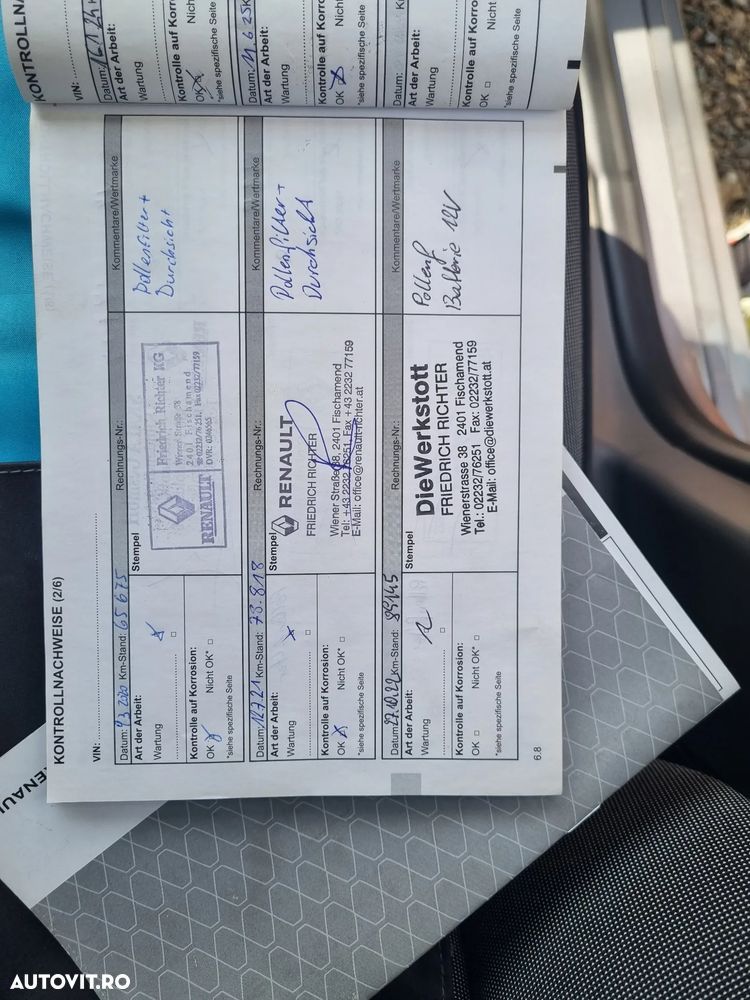 KONTROLLNACHWEISE (2/6)
VIN:
Datum: 9.3.2020 Km-Stand: 65 675
Rechnungs-Nr.:
Kommentare/Wertmarke
Art der Arbeit:
Wartung
Kontrolle auf Korrosion:
OK Nicht OK*
*siehe spezifische Seite
Stempel
RENAULT
Friedrich Richter KG
Wiener Straße 38
2401 Fischamend
Pollenfilter +
Durchsicht
Datum: 12.7.21 Km-Stand: 73.818
Rechnungs-Nr.:
Kommentare/Wertmarke
Art der Arbeit:
Wartung
Kontrolle auf Korrosion:
OK Nicht OK*
*siehe spezifische Seite
Stempel
RENAULT
FRIEDRICH RICHTER
Wiener Straße 38, 2401 Fischamend
Tel: +43 2232 76251, Fax +43 2232 77159
E-Mail: office@renault-richter.at
Pollenfilter +
Durchsicht
Datum: 27.10.22 Km-Stand: 89145
Rechnungs-Nr.:
Kommentare/Wertmarke
Art der Arbeit:
Wartung
Kontrolle auf Korrosion:
OK Nicht OK*
*siehe spezifische Seite
Stempel
DieWerkstott
FRIEDRICH RICHTER
Wienerstrasse 38 2401 Fischamend
Tel.: 02232/76251 Fax: 02232/77159
E-Mail: office@diewerkstott.at
Pollenf
Batterie 12V
6.8
VIN:
Datum: 16.1.24
Art der Arbeit:
Wartung
Kontrolle auf
OK Nicht
*siehe spezifische Seite
Art der Arbeit:
Wartung
Kontrolle auf Korrosion
OK Nicht
*siehe spezifische Seite
Datum:
Art der Arbeit:
Wartung
Kontrolle auf
OK Nicht
*siehe spezifische Seite
AUTOVIT.RO